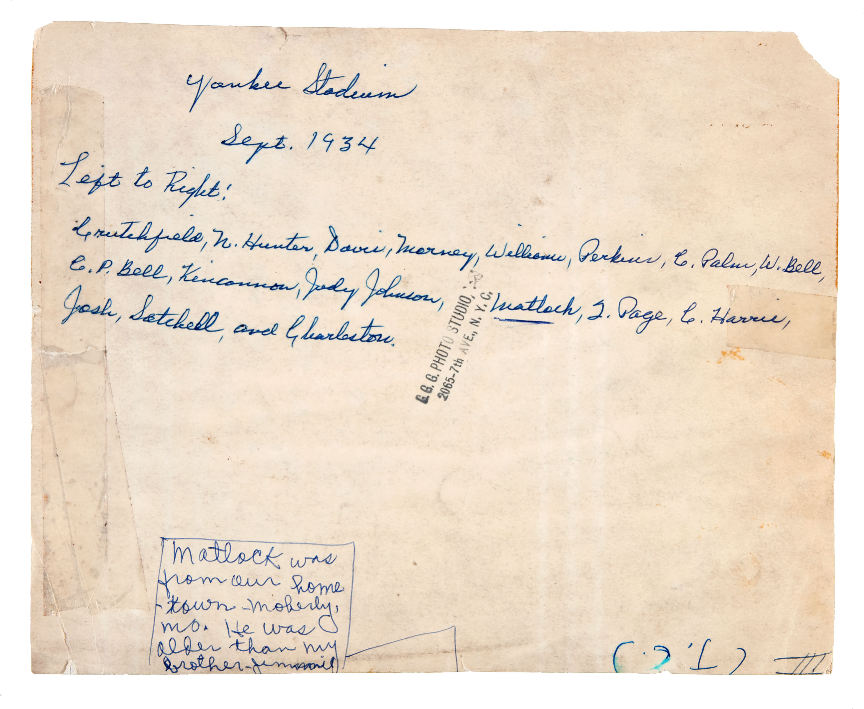 Yankee Stadium
Sept. 1934
Left to Right:
Crutchfield, N. Hunter, Davis, Morney, Williams, Perkins, C. Palm, W. Bell,
C. P. Bell, Kincannon, Judy Johnson, Matlock, T. Page, C. Harris,
Josh, Satchell, and Charleston.
G.G.G. PHOTO STUDIO,
2065-7th AVE., N. Y. C.
Matlock was
from our home
town - Moberly,
Mo. He was
older than my
Brother - Jimmie
(J.C.)
III